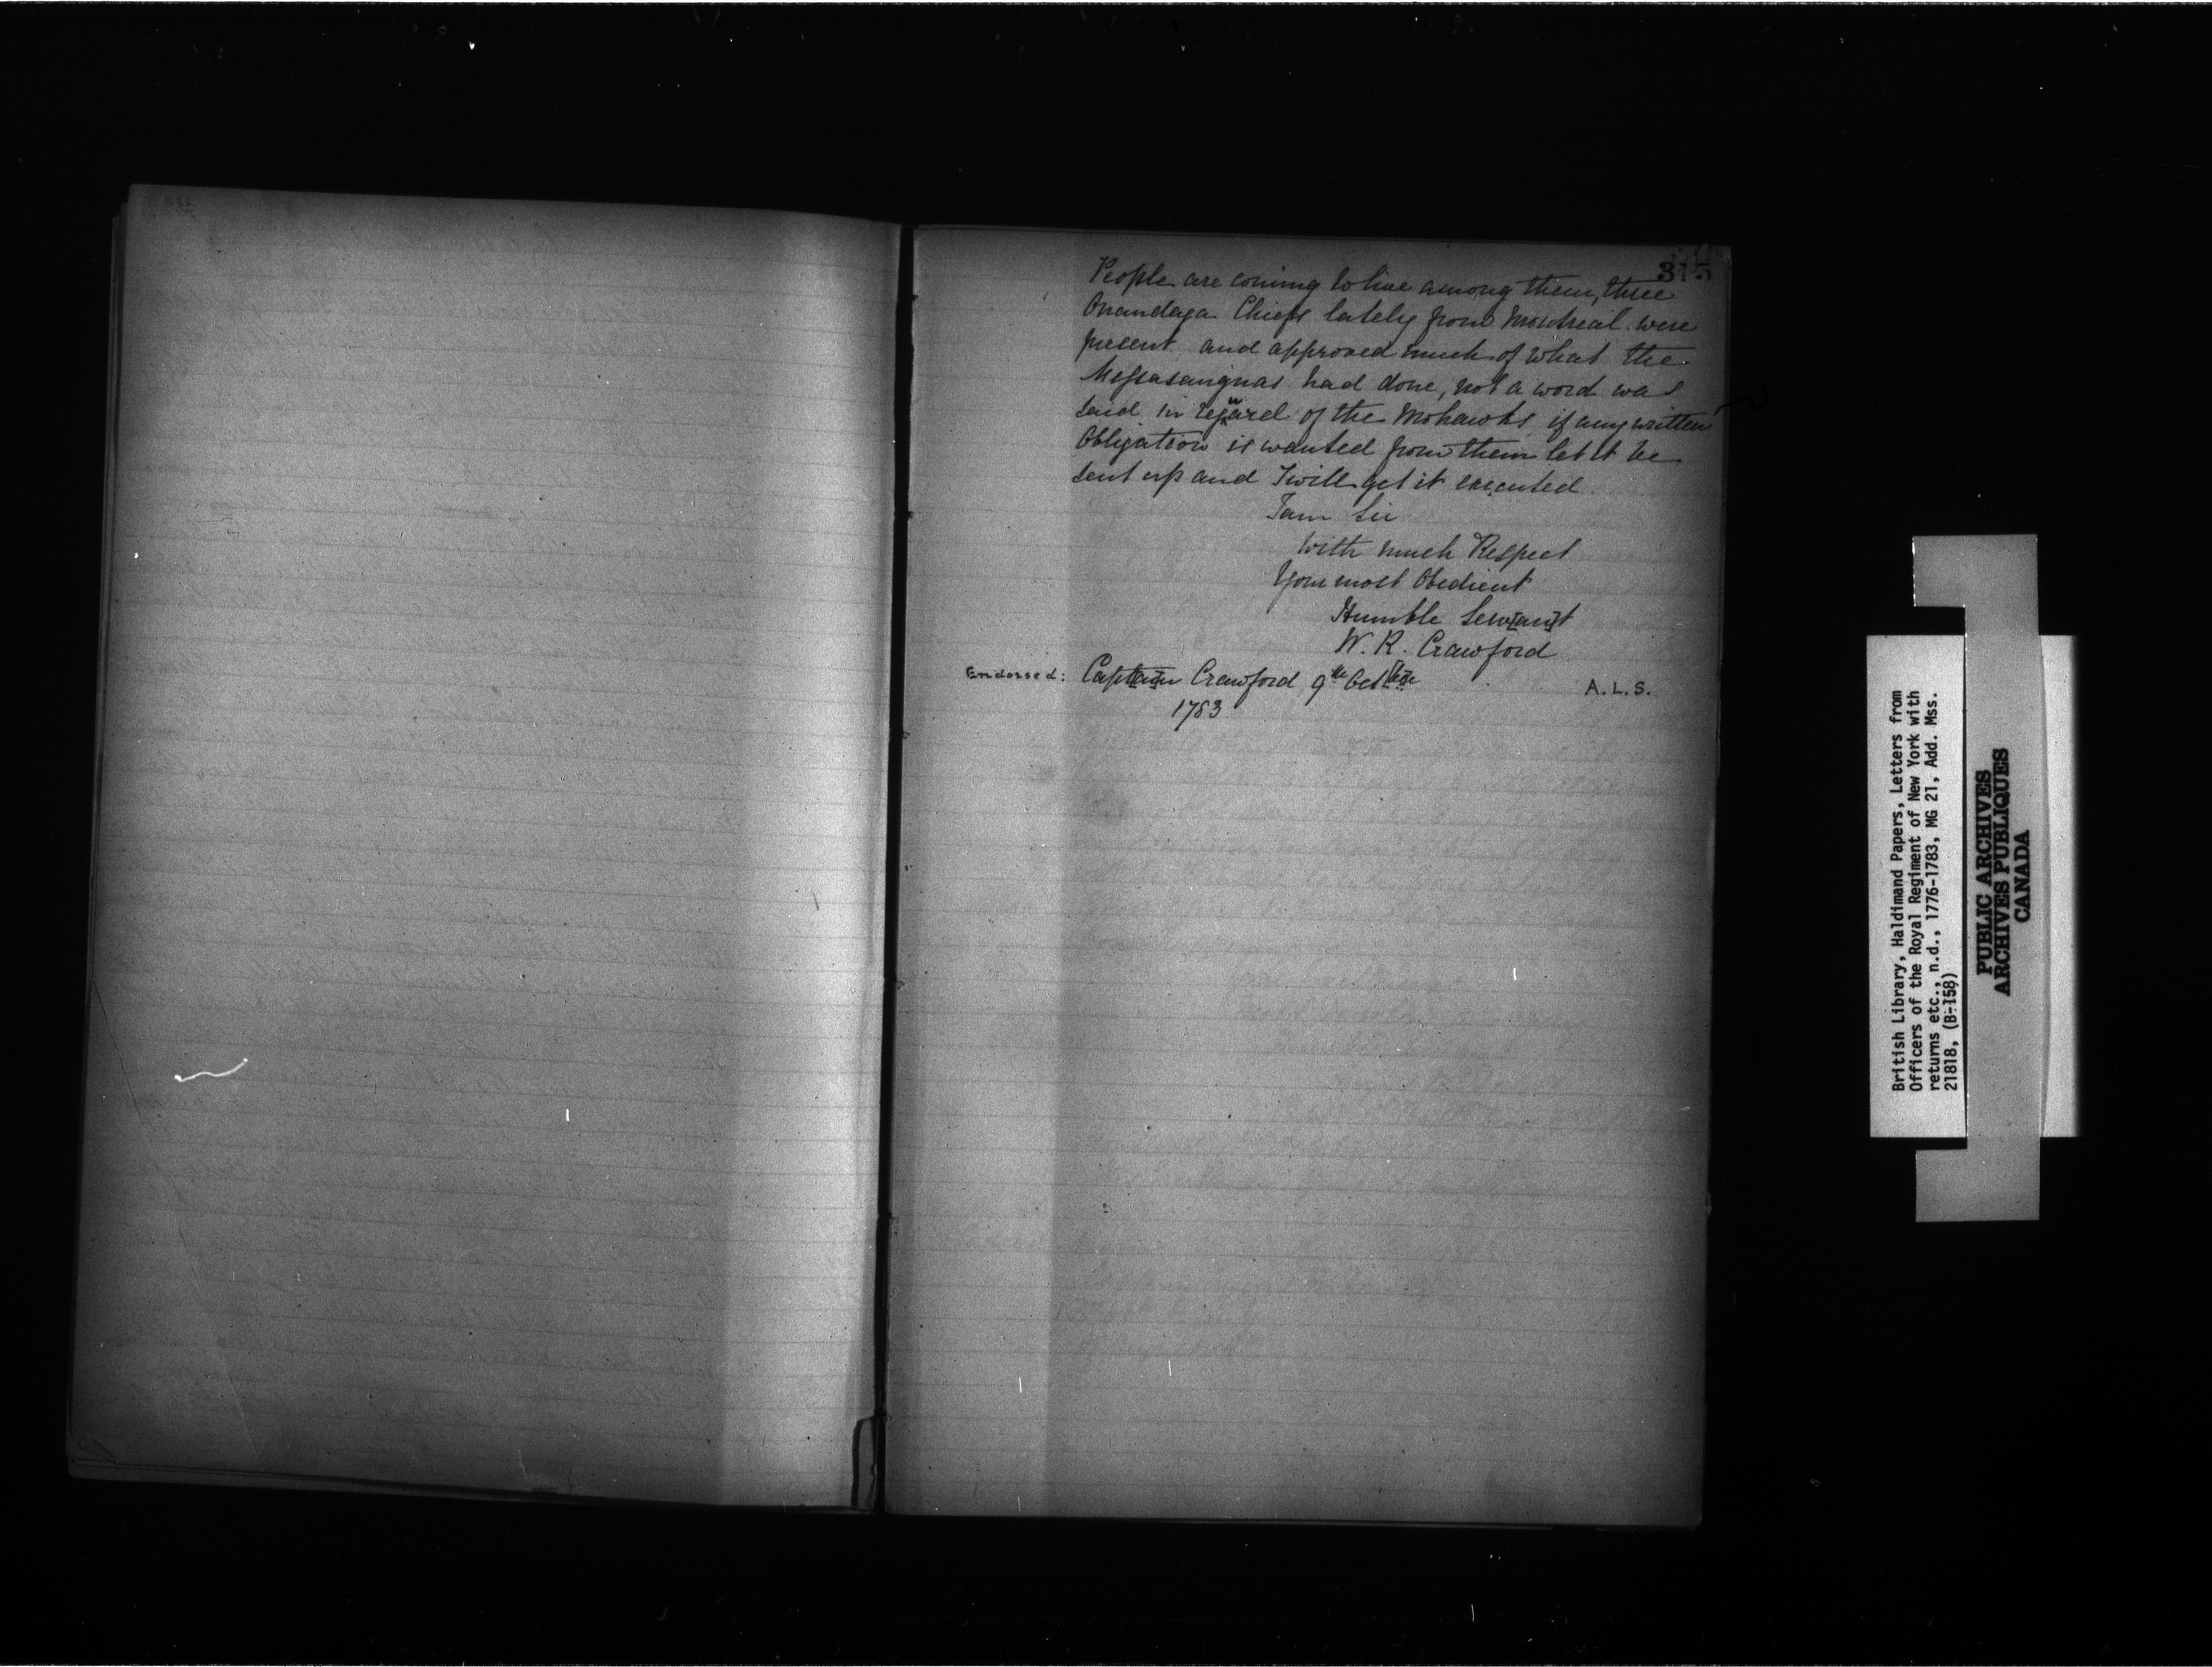 315
People are coming to live among them, three
Onandaga Chiefs lately from Montreal were
present and approved much of what the
Messasaugnas had done, not a word was
said in reguard of the Mohawks if any written
Obligation is wanted from them let it be
sent up and I will get it executed
I am Sir
with much Respect
Your most Obedient
Humble Serv[an]t
W. R. Crawford
Endorsed: Capt[ai]n Crawford 9th Oct[obe]r A.L.S.
1783
British Library, Haldimand Papers, Letters from
Officers of the Royal Regiment of New York with
returns etc., n.d., 1776-1783, MG 21, Add. Mss.
21818, (B-158)
PUBLIC ARCHIVES
ARCHIVES PUBLIQUES
CANADA